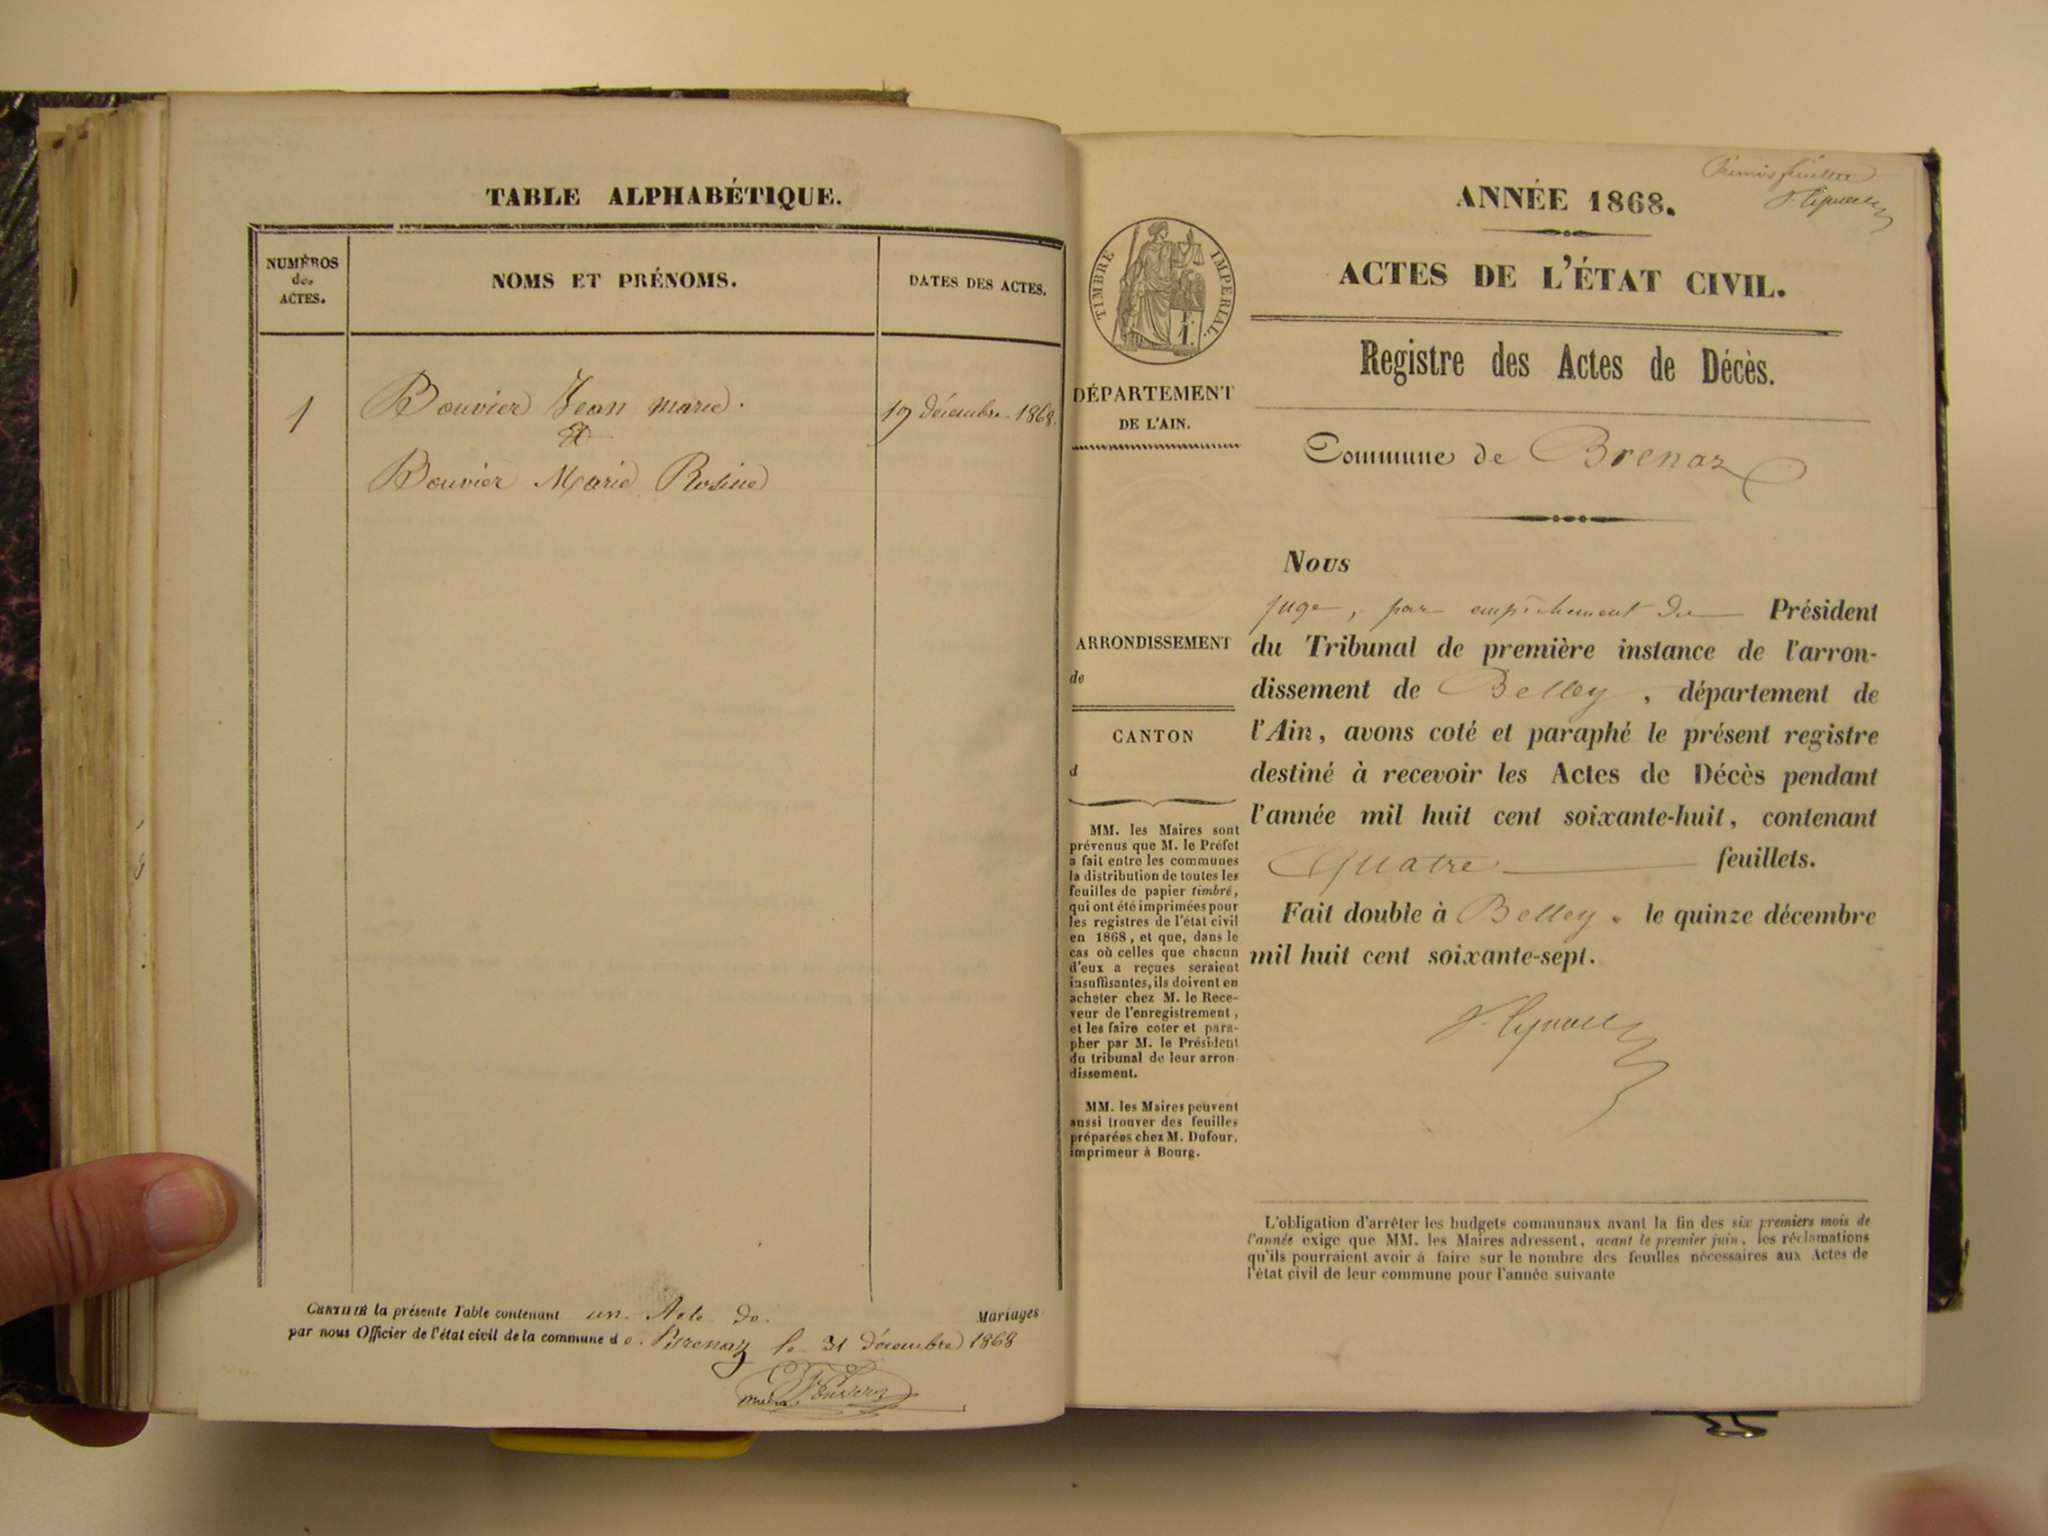 TABLE ALPHABÉTIQUE.
NUMÉROS
des
ACTES.
NOMS ET PRÉNOMS.
DATES DES ACTES.
1
Bouvier Jean marie.
décembre 1868.
et
Bouvier Marie Rosine
CERTIFIÉ la présente Table contenant un Acte de Mariages
par nous Officier de l'état civil de la commune de Brenaz le 31 décembre 1868
ANNÉE 1868.
ACTES DE L'ÉTAT CIVIL.
TIMBRE IMPERIAL.
Registre des Actes de Décès.
DÉPARTEMENT
DE L'AIN.
Commune de Brenaz
ARRONDISSEMENT
de
CANTON
d
MM. les Maires sont
prévenus que M. le Préfet
a fait entre les communes
la distribution de toutes les
feuilles de papier timbré,
qui ont été imprimées pour
les registres de l'état civil
en 1868, et que, dans le
cas où celles que chacun
d'eux a reçues seraient
insuffisantes, ils doivent en
acheter chez M. le Rece-
veur de l'enregistrement,
et les faire coter et para-
pher par M. le Président
du tribunal de leur arron-
dissement.
MM. les Maires peuvent
aussi trouver des feuilles
préparées chez M. Dufour,
imprimeur à Bourg.
Nous
juge, par empêchement du Président
du Tribunal de première instance de l'arron-
dissement de Belley, département de
l'Ain, avons coté et paraphé le présent registre
destiné à recevoir les Actes de Décès pendant
l'année mil huit cent soixante-huit, contenant
Quatre feuillets.
Fait double à Belley, le quinze décembre
mil huit cent soixante-sept.
L'obligation d'arrêter les budgets communaux avant la fin des six premiers mois de
l'année exige que MM. les Maires adressent, avant le premier juin, les réclamations
qu'ils pourraient avoir à faire sur le nombre des feuilles nécessaires aux Actes de
l'état civil de leur commune pour l'année suivante